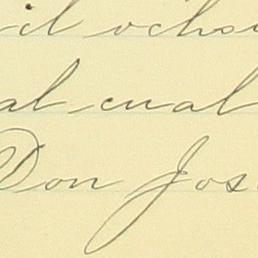 il ocho
al cual
Don Jos